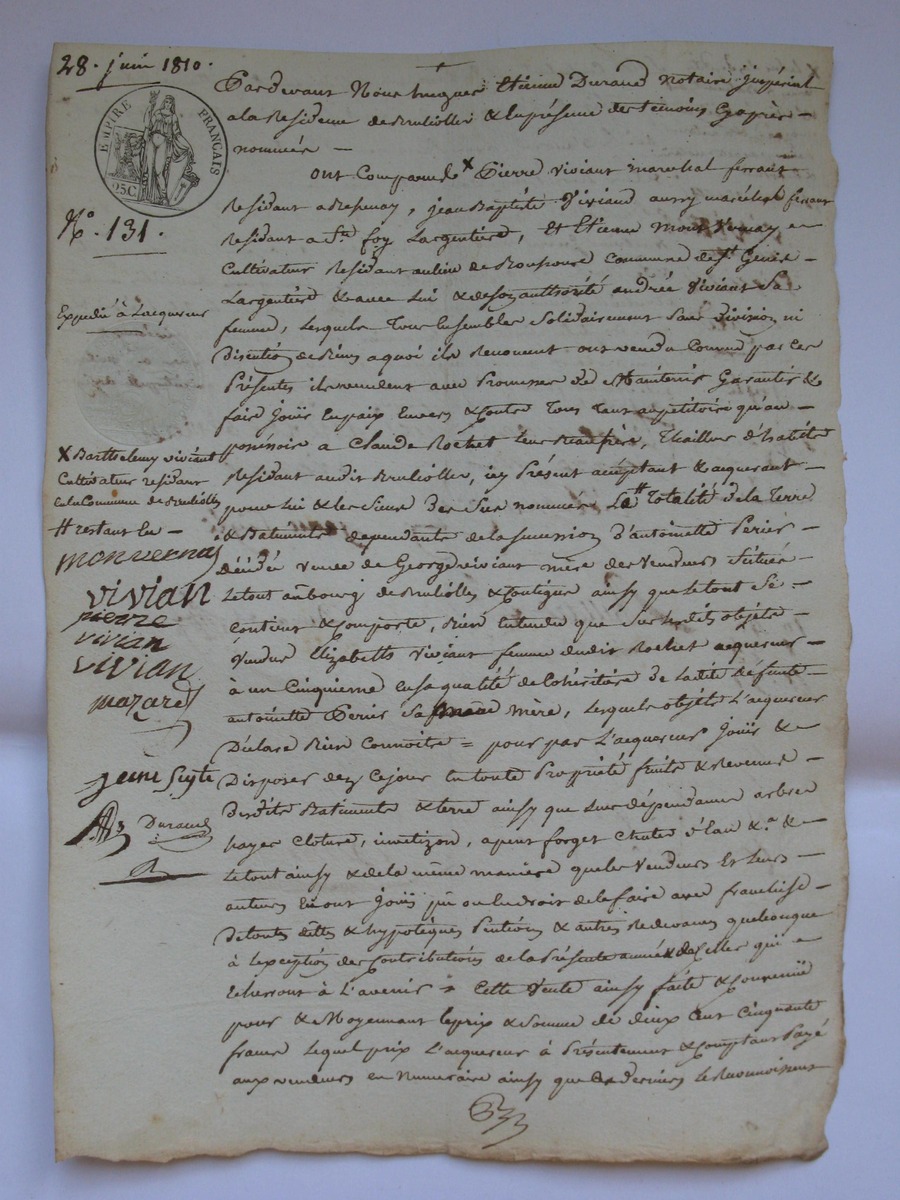 28. juin 1810.
EMPIRE FRANÇAIS
25C
N° 131.
Expedié à Lacquereur
X Barthelemy viviant
Cultivateur residant
en la Commune de Brulliolles
# restant en
monvernay
vivian
pierre
vivian
vivian
mazard
jean
Durand
Pardevant Nous hugues Etienne Durand Notaire jmpérial
a la Residence de Brulliolles & en présence des temoins Cy après
nommés
ont Comparu X Pierre viviant marechal ferrant
Residant a Bessenay, jean Baptiste Viviand aussy maréchal ferrant
Residant a Ste foy Largentière, Et Etienne Mont Vernay
Cultivateur Residant au lieu de commune de St Genis
Largentière & avec Lui & de son authorité andrée Viviant Sa
femme, Lesquels Tous Ensembles Solidairement Sans division ni
Discution de Biens a quoi ils Renoncent ont vendu Comme par Ces
Présentes ils vendent avec Promesse de Maintenir Garantir &
faire Jouïr En paix Envers & Contre Tous
a Claude Rochet leur Beaufrère, Tailleur d'habits
Residant audit Brulliolles, icy Présent acceptant & acquerant
pour Lui & les Siens des Sus nommés La # Totalité de la Terre
& Batiments dependants de la succession d'antoinette Perier
décédée veuve de George viviant mère des Vendeurs Situés
Le tout au bourg de Brulliolles & Contigue ainsy que le tout Se
contient & Comporte, Bien Entendu que Sur lesdits objets
Vendus Elizabeth Viviant femme dudit Rochet acquereur
à un Cinquieme en sa qualité de Cohéritière de Ladite défunte
antoinette Perier Sa mère, Lesquels objets L'acquereur
Déclare Bien Connoitre = pour par L'acquereur Jouïr &
Disposer dez Cejour En toute Propriété fruits & Revenus
Desdits Batiments & terre ainsy que Leurs dépendances arbres
hayes Cloture, forget Chute d'Eau &a &
Le tout ainsy & de la même manière que les Vendeurs Et Leurs
auteurs En ont Jouïs pu ou Eu droit de le faire avec franchise
De toutes dettes & hypotèques Pentions & autres Redevances quelconque
à lexception des Contributions de la Présente année & de Celles qui
Echerront à L'avenir = Cette Vente ainsy faite & Convenüe
pour & Moyennant le prix & Somme de deux Cent Cinquante
francs Lequel prix L'acquereur à Présentement & Comptant Payé
aux vendeurs en Numeraire ainsy que Ces derniers le Reconnoissent